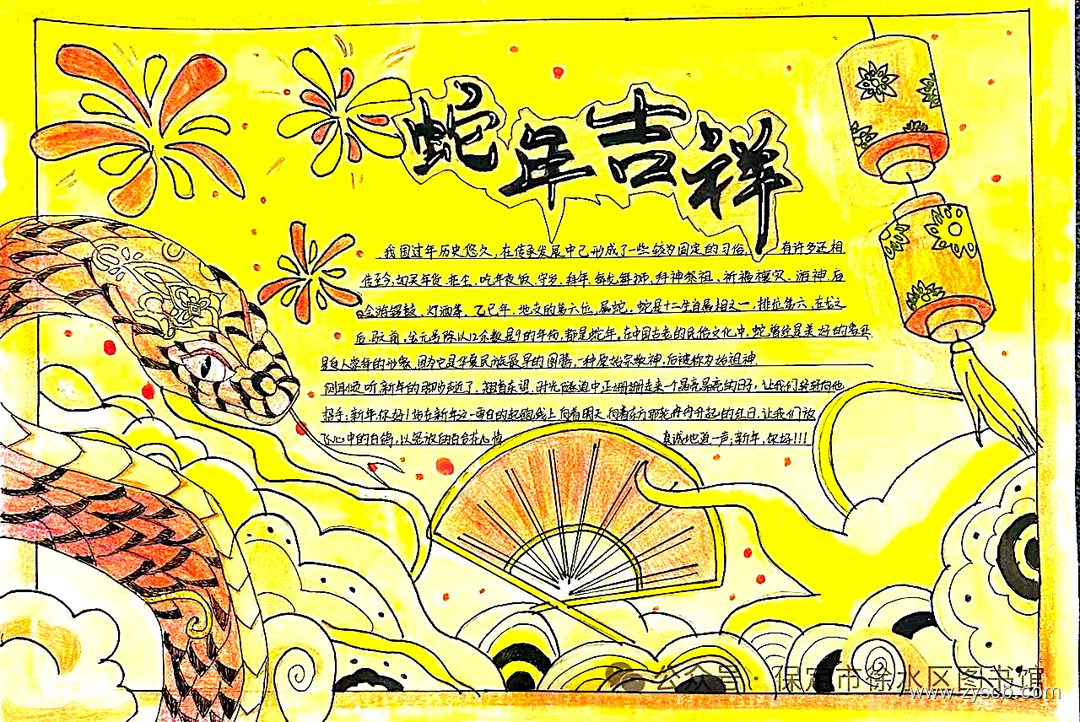 蛇年吉祥
我国过年历史悠久,在传承发展中已形成了一些较为固定的习俗,有许多还相
传至今,如买年货、扫尘、吃年夜饭、守岁、拜年、舞龙舞狮、拜神祭祖、祈福禳灾、游神、庙
会、游锣鼓、灯酒等。乙巳年,地支的第六位,属蛇,蛇是十二生肖属相之一,排位第六,在
后,马之前,公元年除以12余数是9的年份,都是蛇年,在中国古老的民俗文化中,蛇曾经是美好的
是自人崇拜的形象,因为它是华夏民族最早的图腾,一种原始宗教神,后被称为始祖神
侧耳倾听,新年的脚步近了,翘首东望,时光隧道中正姗姗走来一个晶亮晶亮的日子,让我们轻轻向他
招手:新年你好!站在新年这一零日的起跑线上,向着明天,向着东方那轮冉冉升起的红日,让我们放
飞心中的白鸽,以绽放的百合花心情
真诚地道一声:新年,你好!!!
公众号·保定市徐水区图书馆
www.zyscb.com